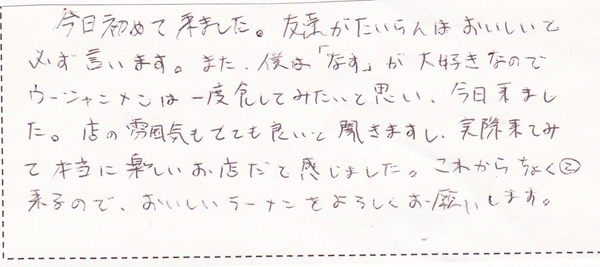 今日初めて来ました。友達がたいらんはおいしいと
必ず言います。また、僕は「なす」が大好きなので
ウーシャンメンは一度食してみたいと思い、今日来まし
た。店の雰囲気もとても良いと聞きますし、実際来てみ
て本当に楽しいお店だと感じました。これからちょく②
来るので、おいしいラーメンをよろしくお願いします。